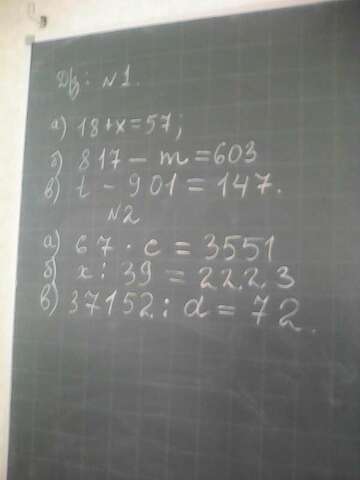 Д/з: №1.
а) 18+x=57;
б) 817 - m = 603
в) t - 901 = 147.
№2
а) 67 · c = 3551
б) x : 39 = 2223
в) 37152 : d = 72.